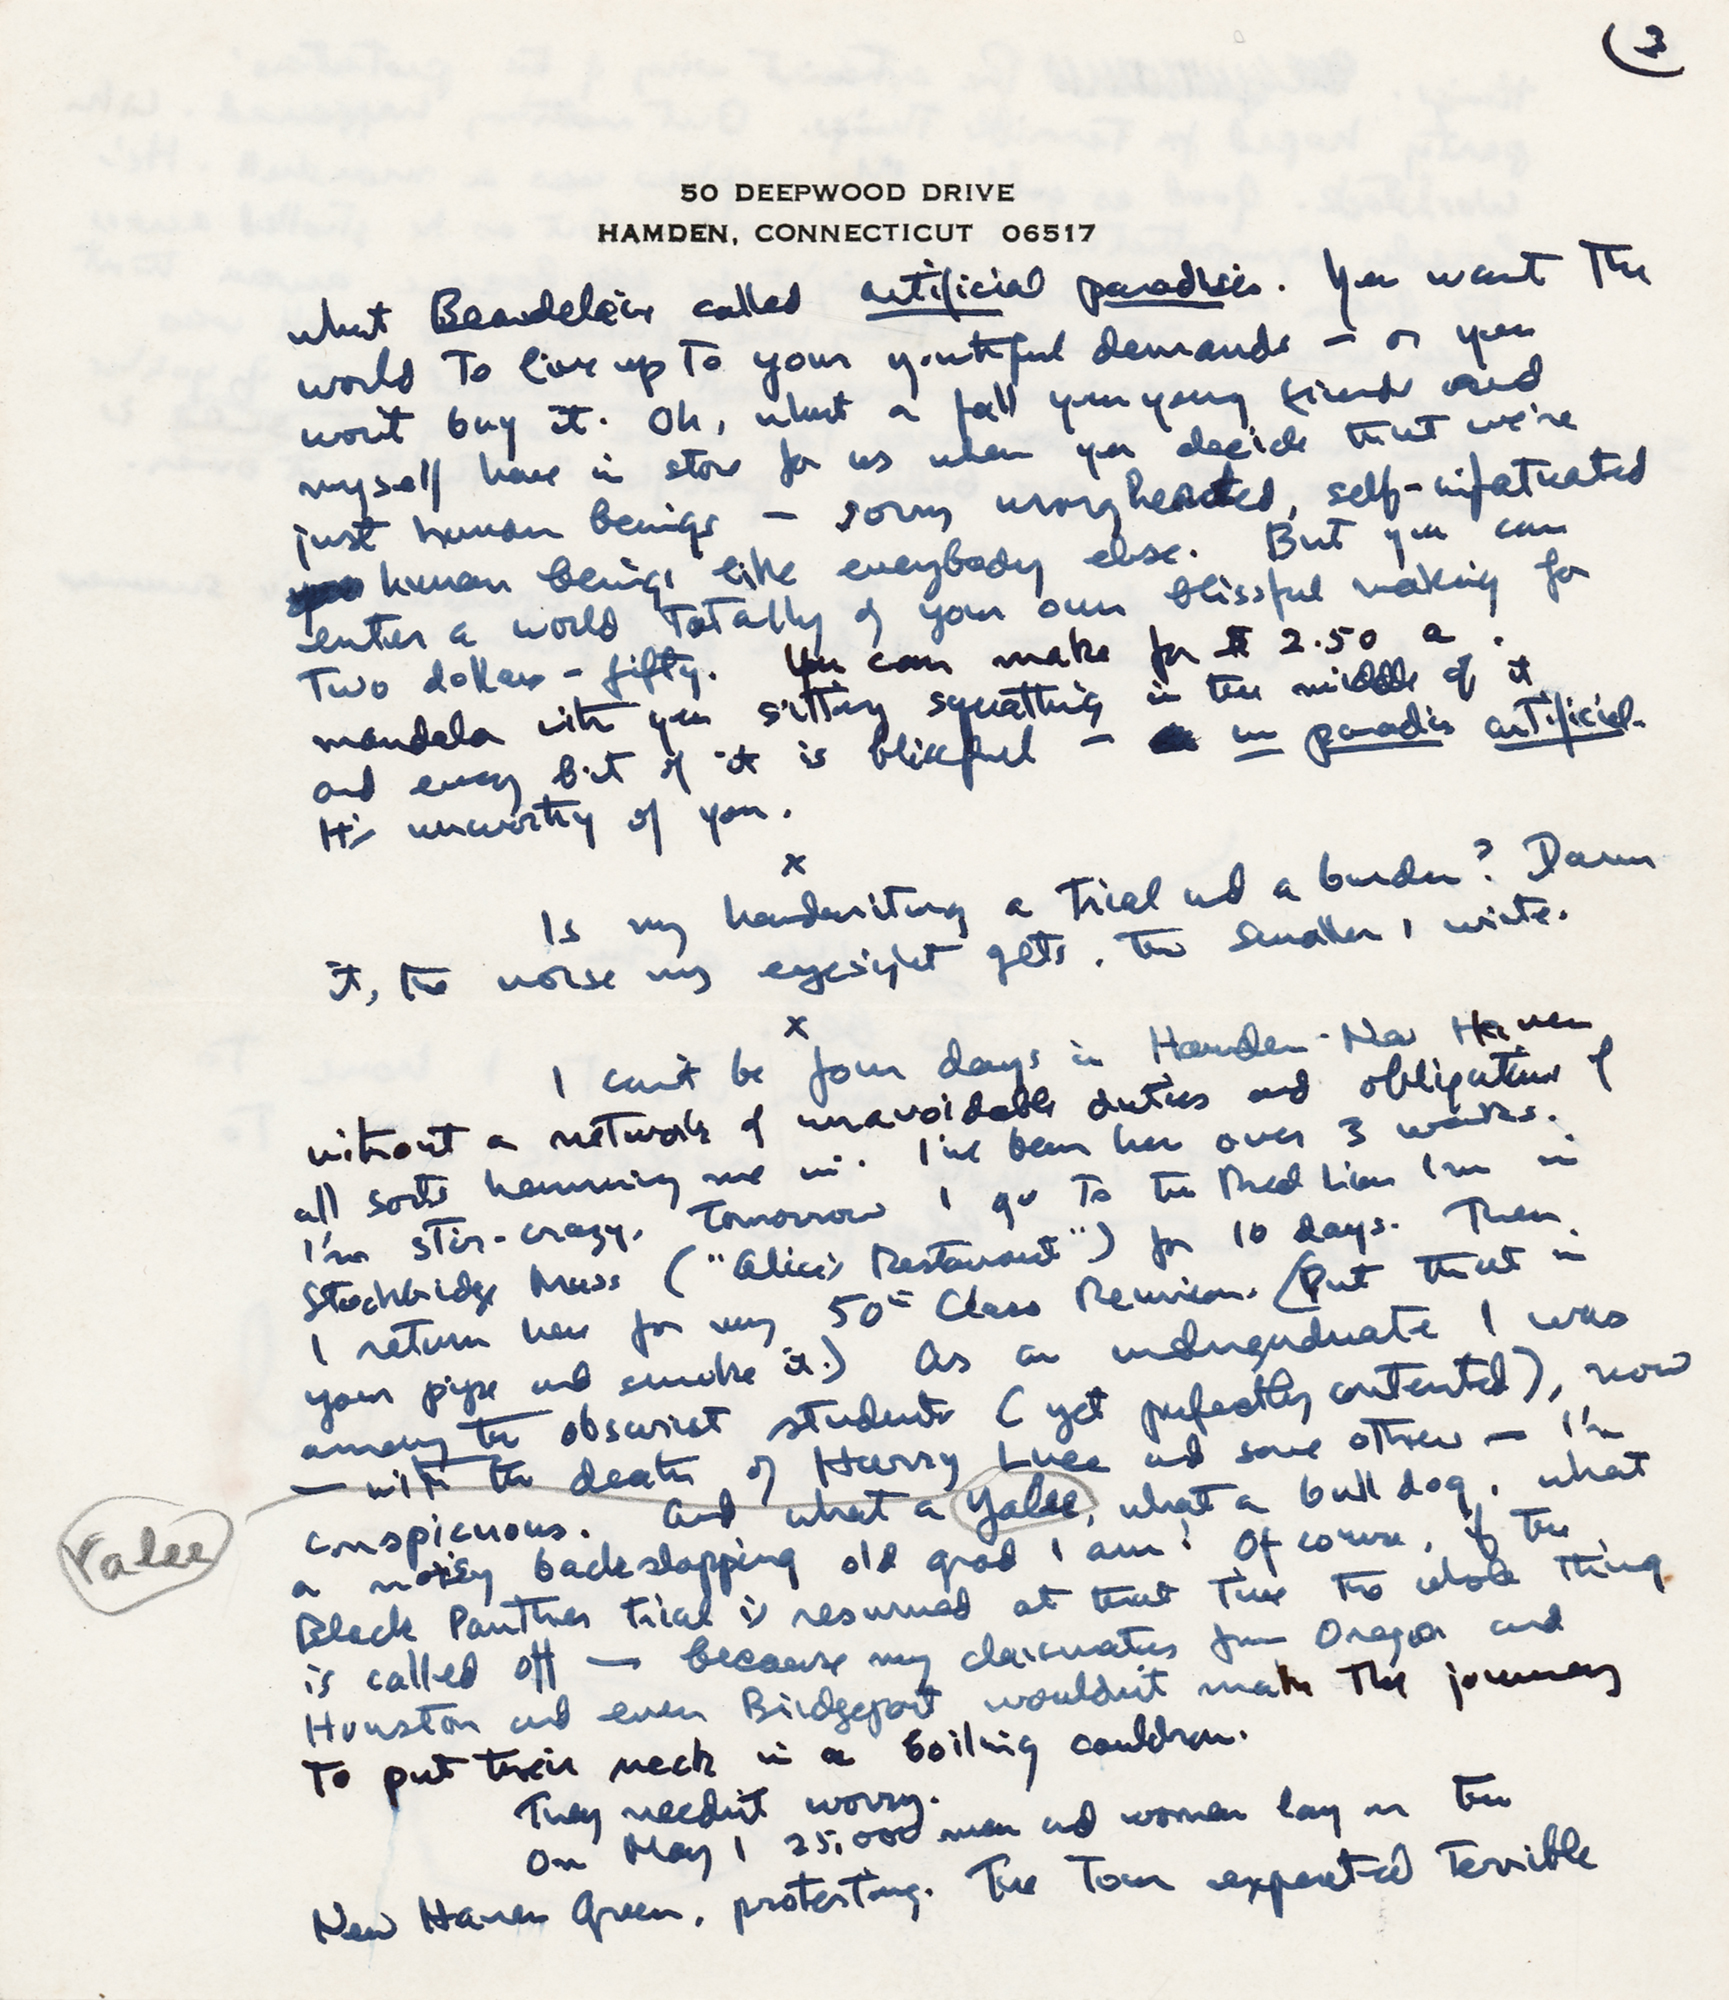 (3
50 DEEPWOOD DRIVE
HAMDEN, CONNECTICUT 06517
what Beaudelaire called artificial paradises. You want the
world to live up to your youthful demands – or you
won't buy it. Oh, what a fall your young friends and
myself have in store for us when you decide that we're
just human beings – sorry wrongheaded, self-infatuated
human beings like everybody else. But you can
enter a world totally of your own blissful making for
two dollars-fifty. You can make for $ 2.50 a
mandala with you sitting squatting in the middle of it
and every bit of it is blissful – un paradis artificiel.
It's unworthy of you.
x
Is my handwriting a trial and a burden? Darn
it, the worse my eyesight gets, the smaller I write.
x
I can't be four days in Hamden-New Haven
without a network of unavoidable duties and obligations of
all sorts hemming me in. I've been here over 3 weeks.
I'm stir-crazy. Tomorrow I go to the Red Lion Inn in
Stockbridge Mass ("Alice's Restaurant") for 10 days. Then
I return here for my 50th Class Reunion. (Put that in
your pipe and smoke it.) As an undergraduate I was
among the obscurest students (yet perfectly contented), now
– with the death of Harry Luce and some others – I'm
conspicuous. And what a Yalee, what a bull dog, what
Yalee
a noisy backslapping old grad I am! Of course, if the
Black Panther trial is resumed at that time the whole thing
is called off – because my classmates from Oregon and
Houston and even Bridgeport wouldn't make the journey
to put their neck in a boiling cauldron.
They needn't worry.
On May 1 25,000 men and women lay on the
New Haven Green, protesting. The Town expected terrible